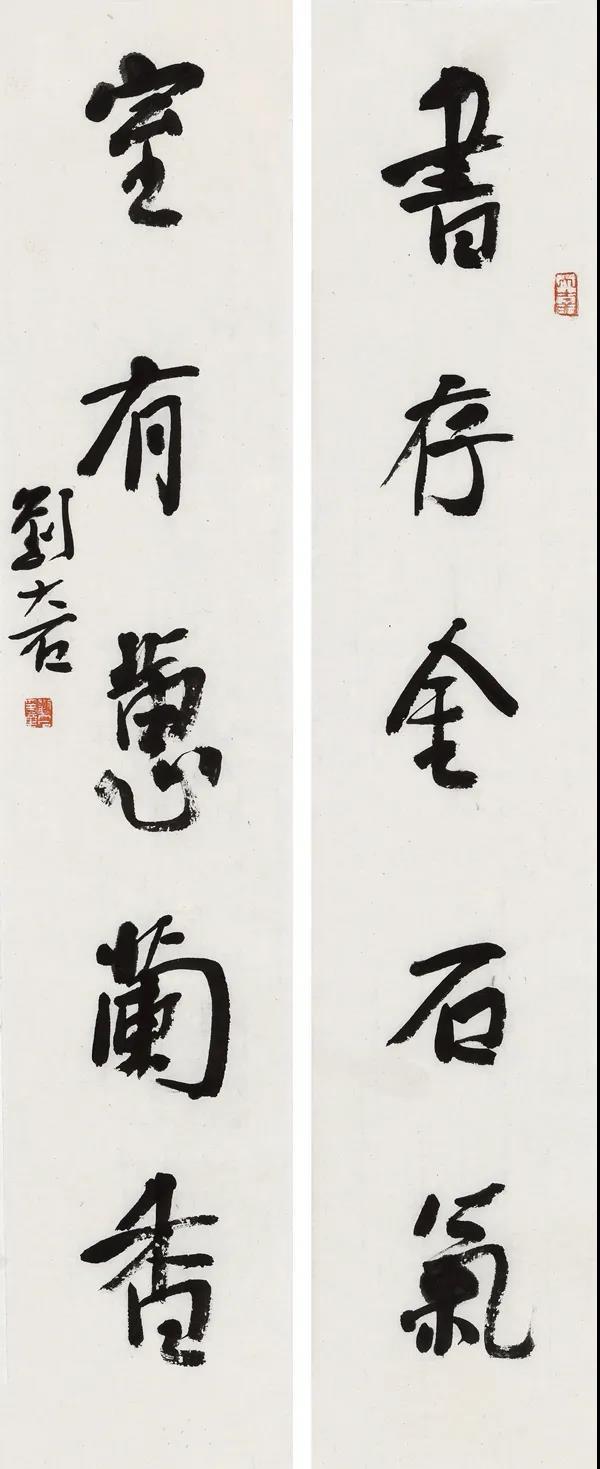 書存金石氣
室有蕙蘭香
劉大石